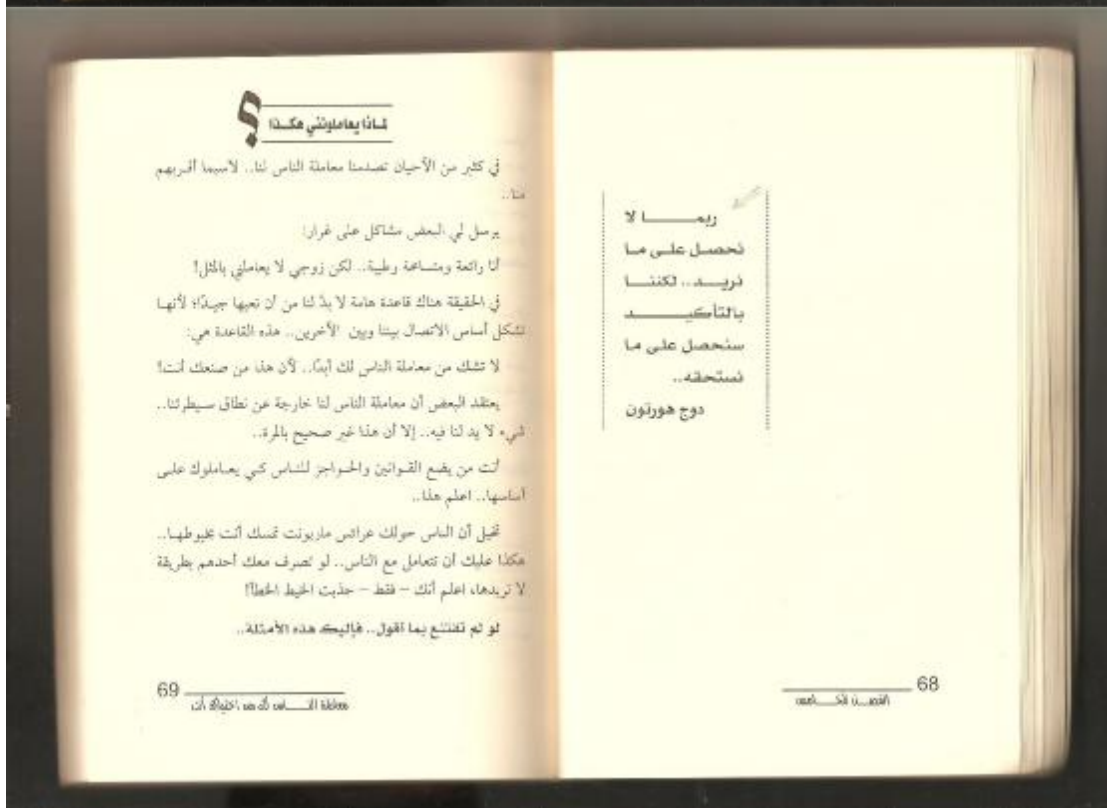 ربمـــا لا
نحصل علـى مـا
نريـــد.. لكننـــا
بالتأكيـــد
سنحصل على ما
نستحقه..
دوج هورتون
68
الفصـــل الخـــامس
لماذا يعاملونني هكـذا؟
في كثير من الأحيان تصدمنا معاملة الناس لنا.. لاسيما أقـربهم
منا..
يرسل لي البعض مشاكل على غرار:
أنا رائعة ومتسامحة وطيبة.. لكن زوجي لا يعاملني بالمثل!
في الحقيقة هناك قاعدة هامة لا بدَّ لنا من أن نعيها جيـدًا؛ لأنهـا
تشكل أساس الاتصال بيننا وبين الآخرين.. هذه القاعدة هي:
لا تشك من معاملة الناس لك أبدًا.. لأن هذا من صنعك أنت!
يعتقد البعض أن معاملة الناس لنا خارجة عن نطاق سـيطرتنا..
شيء لا يد لنا فيه.. إلا أن هذا غير صحيح بالمرة..
أنت من يضع القـوانين والحـواجز للنـاس كـي يعـاملوك علـى
أساسها.. اعلم هذا..
تخيل أن الناس حولك عرائس ماريونت تمسك أنت بخيوطهـا..
هكذا عليك أن تتعامل مع الناس.. لو تصرف معك أحدهم بطريقة
لا تريدها، اعلم أنك – فقط – جذبت الخيط الخطأ!
لو لم تقتنع بما أقول.. فإليك هذه الأمثلة..
69
معاملة النـــاس لك من اختيارك أنت